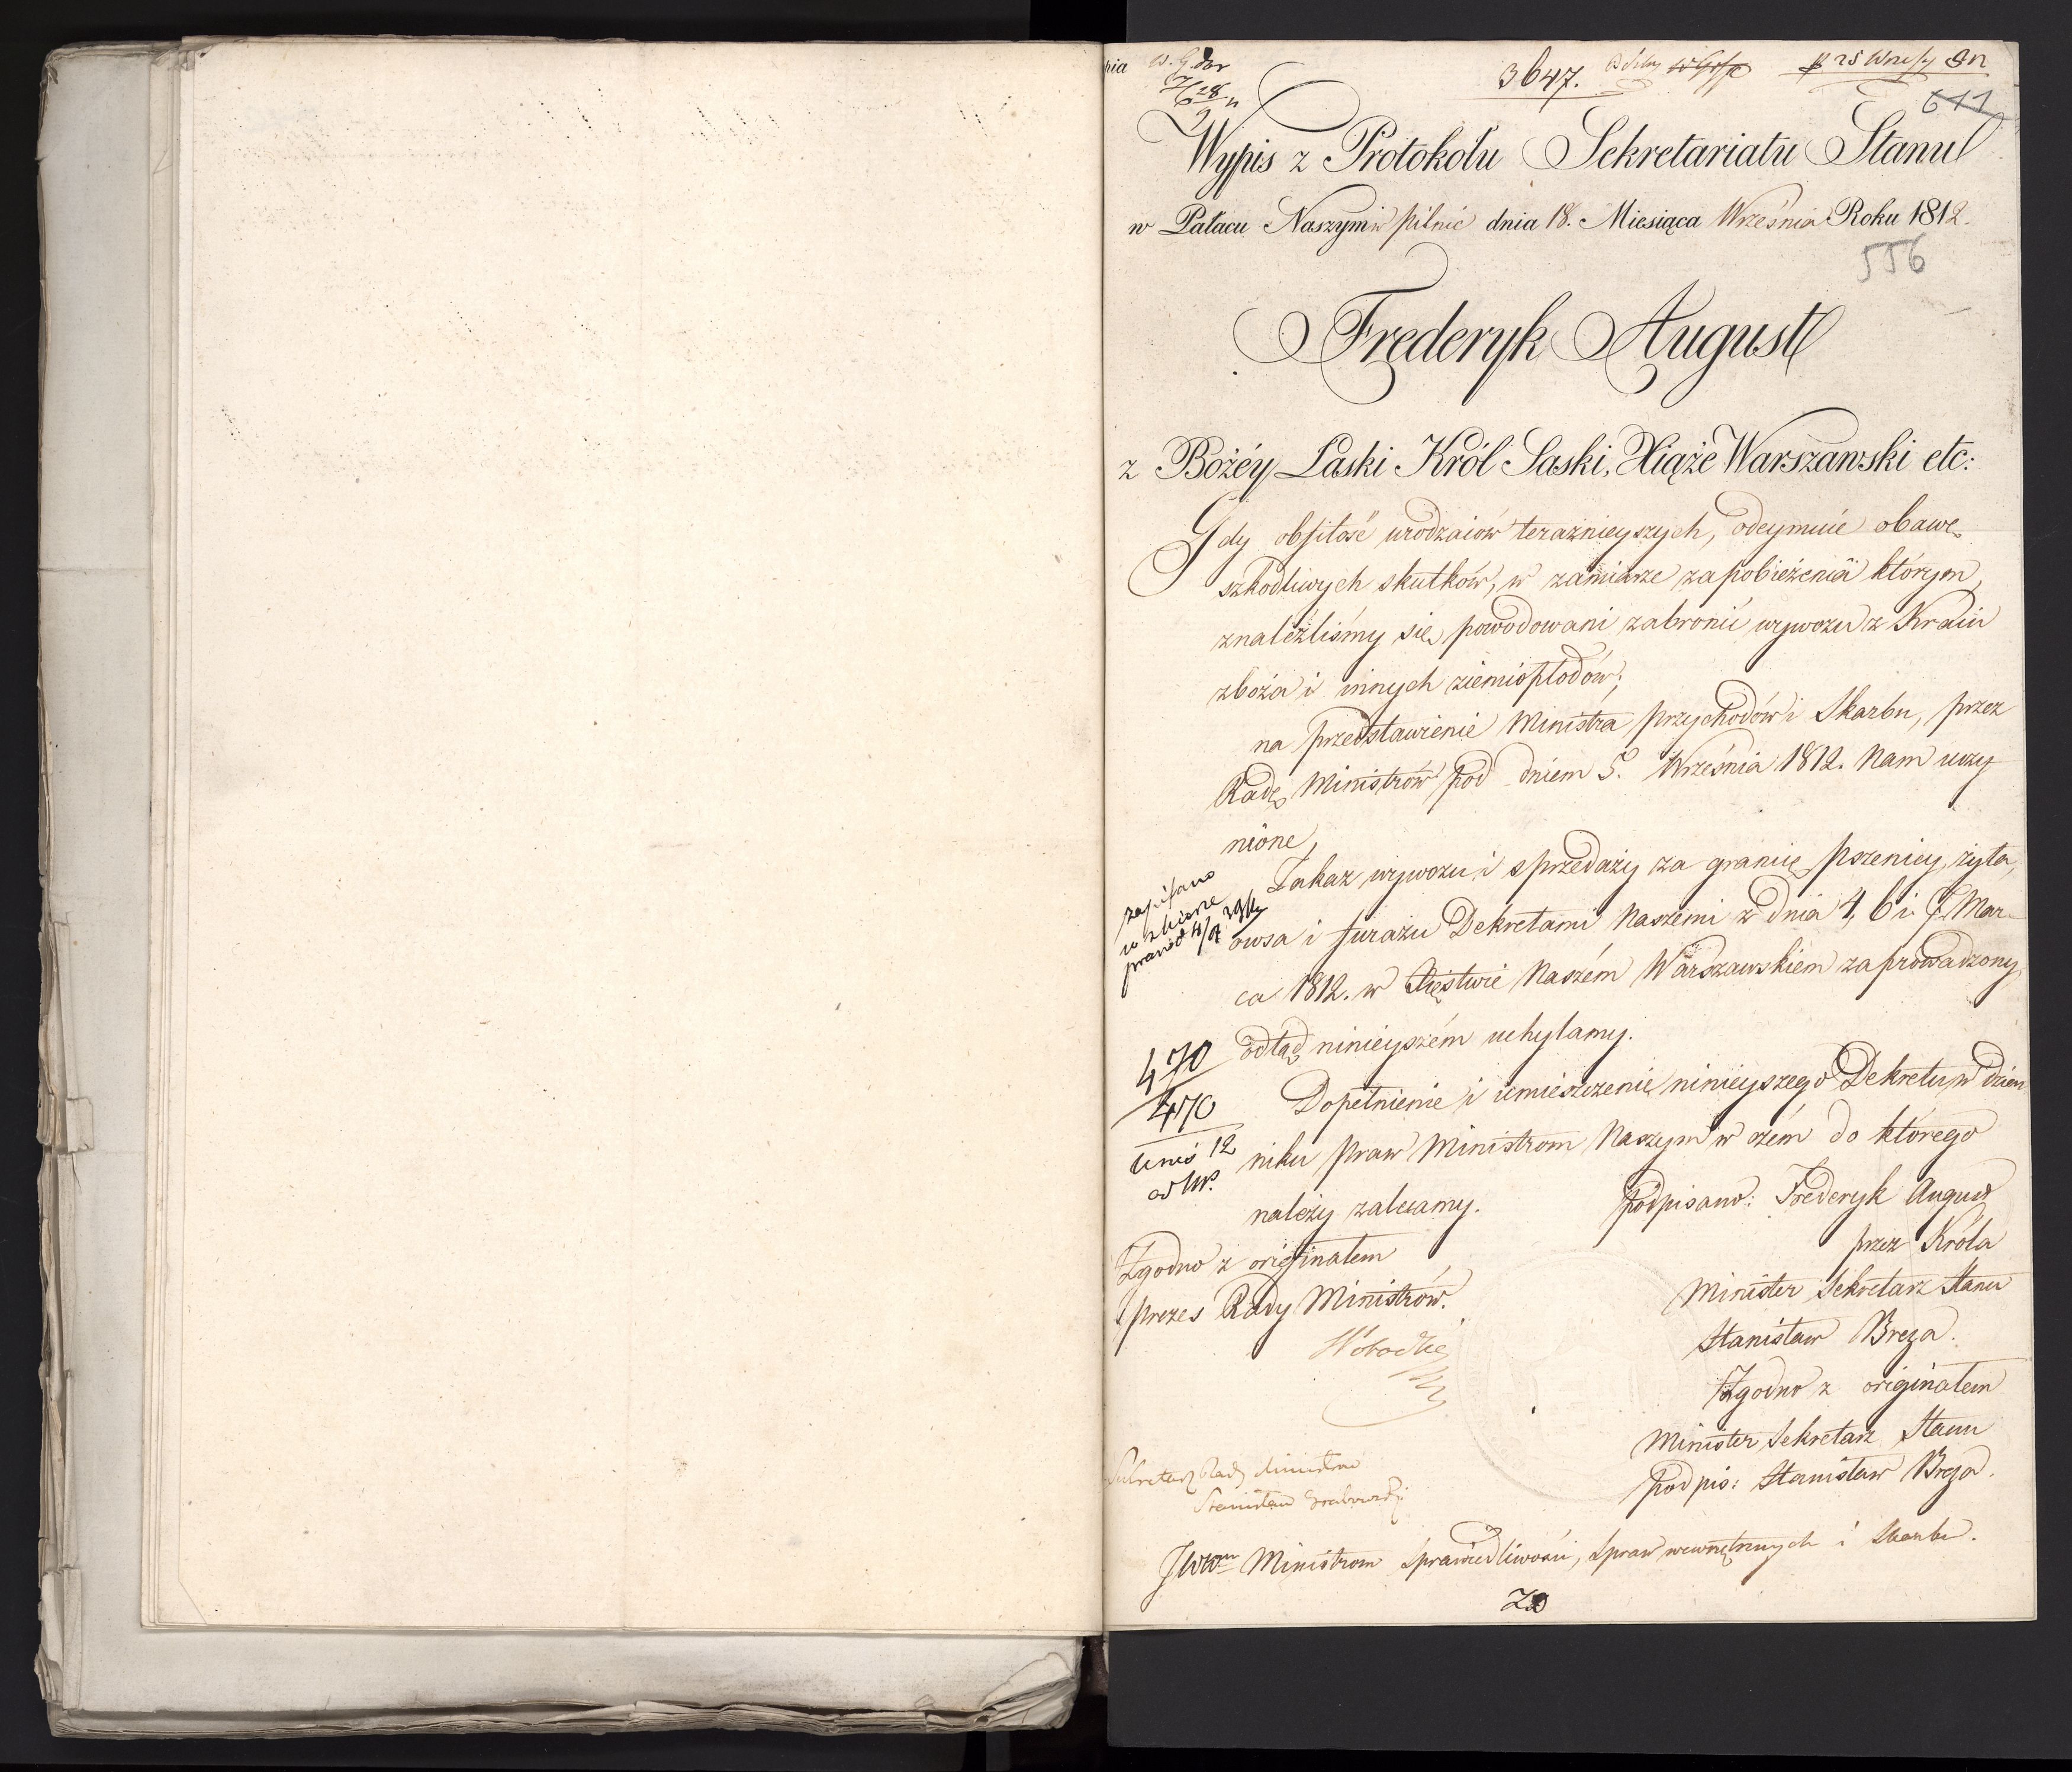 3647.
611
Wypis z Protokołu Sekretariatu Stanu
w Pałacu Naszym w Pilnic dnia 18. Miesiąca Września Roku 1812.
556
Frederyk August
z Bożéy Łaski Król Saski, Xiąże Warszawski etc:
Gdy obfitość urodzaiów teraźnieyszych, odeymuie obawę
szkodliwych skutków, w zamiarze zapobieżenia którym,
znaleźliśmy się powodowani zabronić wywozu z Kraiu
zboża i innych ziemiopłodów;
na przedstawienie Ministra Przychodów i Skarbu, przez
Radę Ministrów pod dniem 5. Września 1812. Nam uczy
nione,
Zakaz wywozu i sprzedaży za granicę pszenicy, żyta,
owsa i furażu Dekretami Naszemi z dnia 4, 6 i 7. Mar-
ca 1812. w Xięstwie Naszém Warszawskiem zaprowadzony,
odtąd ninieyszém uchylamy.
Dopełnienie i umieszczenie ninieyszego Dekretu w dzien
niku Praw Ministrom Naszym w czém do którego
należy zalecamy.
zapisano
w zbiorze
praw
470
470
Podpisano: Frederyk August
przez Króla
Minister Sekretarz Stanu
Stanisław Breza.
Zgodno z originałem
Minister Sekretarz Stanu
podpis: Stanisław Breza.
Zgodno z originałem
Prezes Rady Ministrów.
Sekretarz Rady Ministrów
Stanisław Grabowski
JWWm Ministrom Sprawiedliwości, Spraw wewnętrznych i Skarbu.